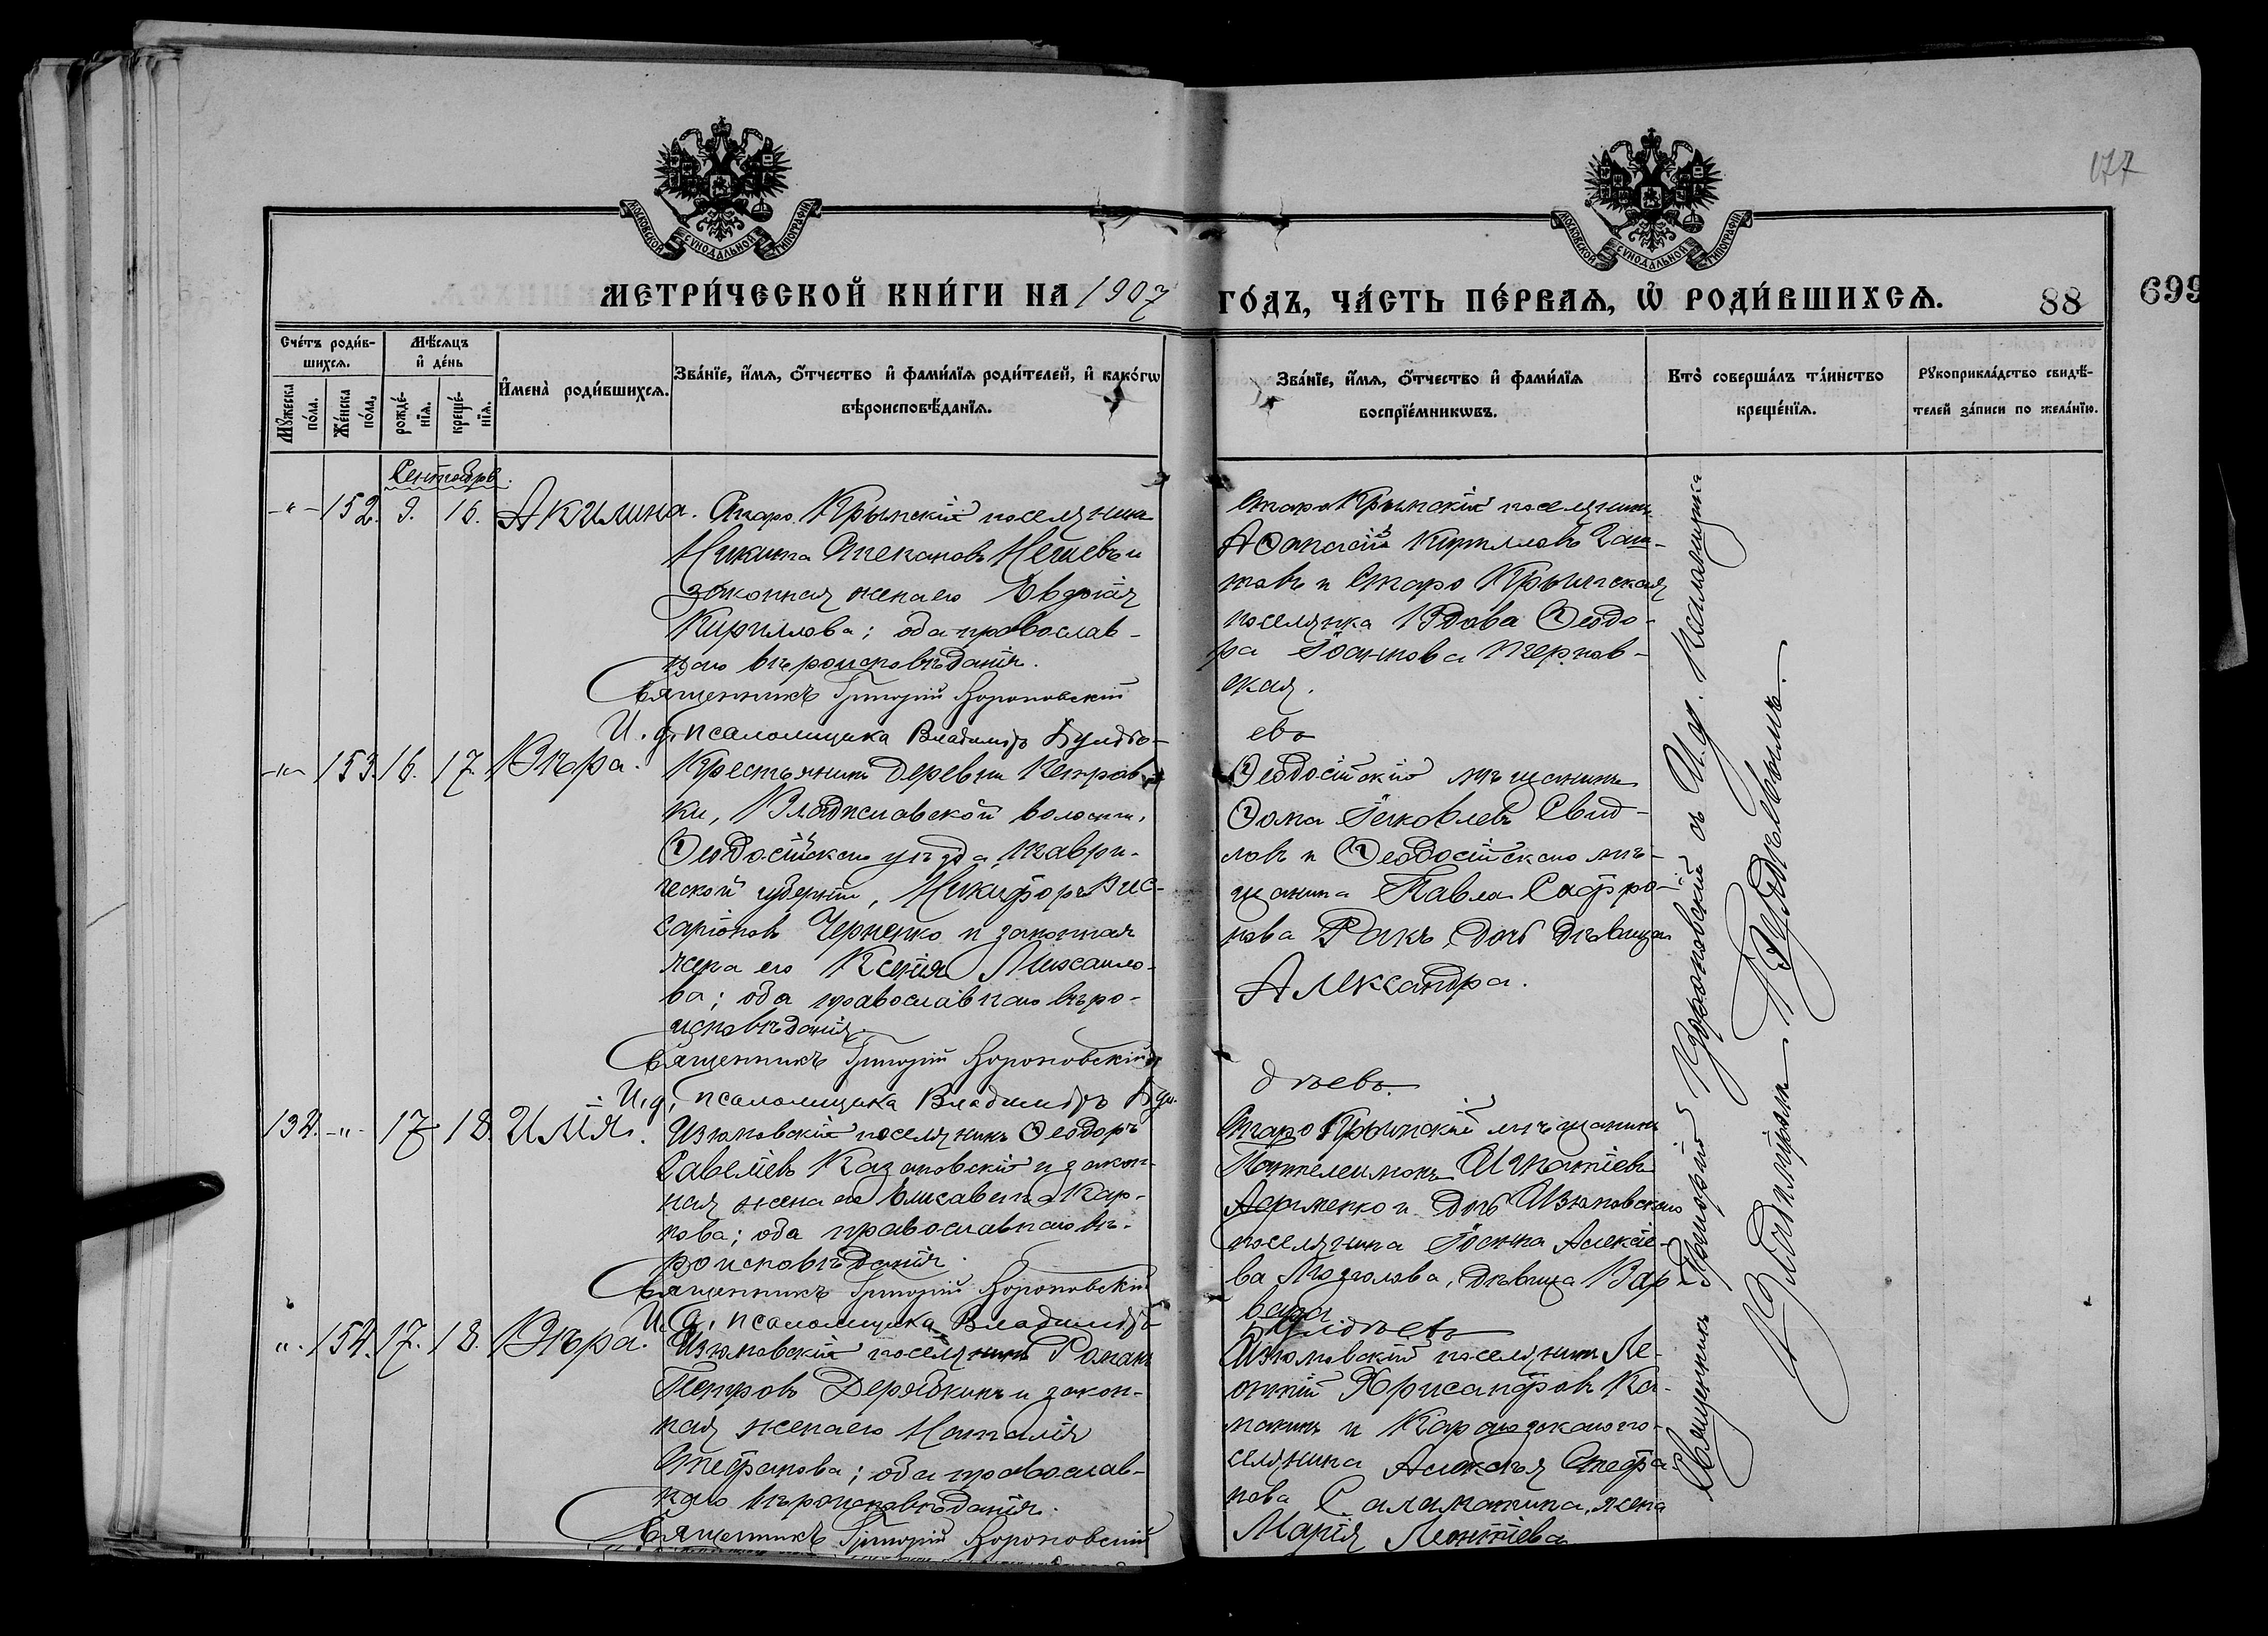 177
МОСКОВСКОЙ СѴНОДАЛЬНОЙ ТИПОГРАФІИ
МОСКОВСКОЙ СѴНОДАЛЬНОЙ ТИПОГРАФІИ
МЕТРИ́ЧЕСКОЙ КНИ́ГИ НА 1907 ГО́ДЪ, ЧА́СТЬ ПЕ́РВАѦ, Ѡ҆ РОДИ́ВШИХСѦ. 88 699
Сче́тъ роди́вшихсѧ.
Мꙋ́жеска по́ла.
Же́нска по́ла.
Мѣ́сѧцъ и҆ де́нь
рожде́нїѧ.
креще́нїѧ.
И҆мена̀ роди́вшихсѧ.
Зва́нїе, и҆́мѧ, ѻ҆́тчество и҆ фами́лїѧ роди́телей, и҆ како́гѡ
вѣроисповѣ́данїѧ.
Зва́нїе, и҆́мѧ, ѻ҆́тчество и҆ фами́лїѧ
воспрїе́мникѡвъ.
Кто̀ соверша́лъ та́инство
креще́нїѧ.
Рꙋкоприкла́дство свидѣ́-
телей за́писи по жела́нїю.
Сентябрь.
-"- 152. 9. 16. Акилина.
Старо Крымскій поселянинъ
Никита Стефановъ Нечаевъ и
законная жена его Евдокія
Кириллова; оба православ-
наго вѣроисповѣданія.
Священникъ Григорій Вороновскій
И. д. псаломщика Владиміръ Булдѣ-
евъ
Старо Крымскій поселянинъ
Аѳанасій Кирилловъ
и Старо Крымская
поселянка вдова Ѳеодо-
ра Іоаннова Чернов-
ская.
-"- 153. 16. 17. Вѣра.
Крестьянинъ деревни Петров-
ки, Владиславской волости,
Ѳеодосійскаго уѣзда, Таври-
ческой губерніи, Никифоръ Вис-
саріоновъ Черненко и законная
жена его Ксенія Михаило-
ва; оба православнаго вѣро-
исповѣданія.
Священникъ Григорій Вороновскій
И. д. псаломщика Владиміръ Бул-
дѣевъ
Ѳеодосійскій мѣщанинъ
Ѳома Іаковлевъ Свид-
ловъ и Ѳеодосійскаго мѣ-
щанина Павла Сафро-
нова дочь дѣвица
Александра.
134. -"- 17. 18. Илія.
Изюмовскій поселянинъ Ѳеодоръ
Савеліевъ Казановскій и закон-
ная жена его Елисавета Кар-
пова; оба православнаго вѣ-
роисповѣданія.
Священникъ Григорій Вороновскій
И. д. псаломщика Владиміръ
Булдѣевъ
Старо Крымскій мѣщанинъ
Пантелеимонъ Игнатіевъ
и дочь Изюмовскаго
поселянина Іоанна Алексіе-
ва дѣвица Вар-
вара
". 154. 17. 18. Вѣра.
Изюмовскій поселянинъ Романъ
Петровъ Дерябкинъ и закон-
ная жена его Наталія
Стефанова; оба православ-
наго вѣроисповѣданія.
Священникъ Григорій Вороновскій
Изюмовскій поселянинъ Ле-
онтій Хрисанфовъ Ка-
и Карагозскаго по-
селянина Алексѣя Стефа-
нова Саламатина, жена
Марія Леонтіева
Священникъ Григорій Вороновскій съ И. д. Псаломщика
Владиміромъ Булдѣевымъ.